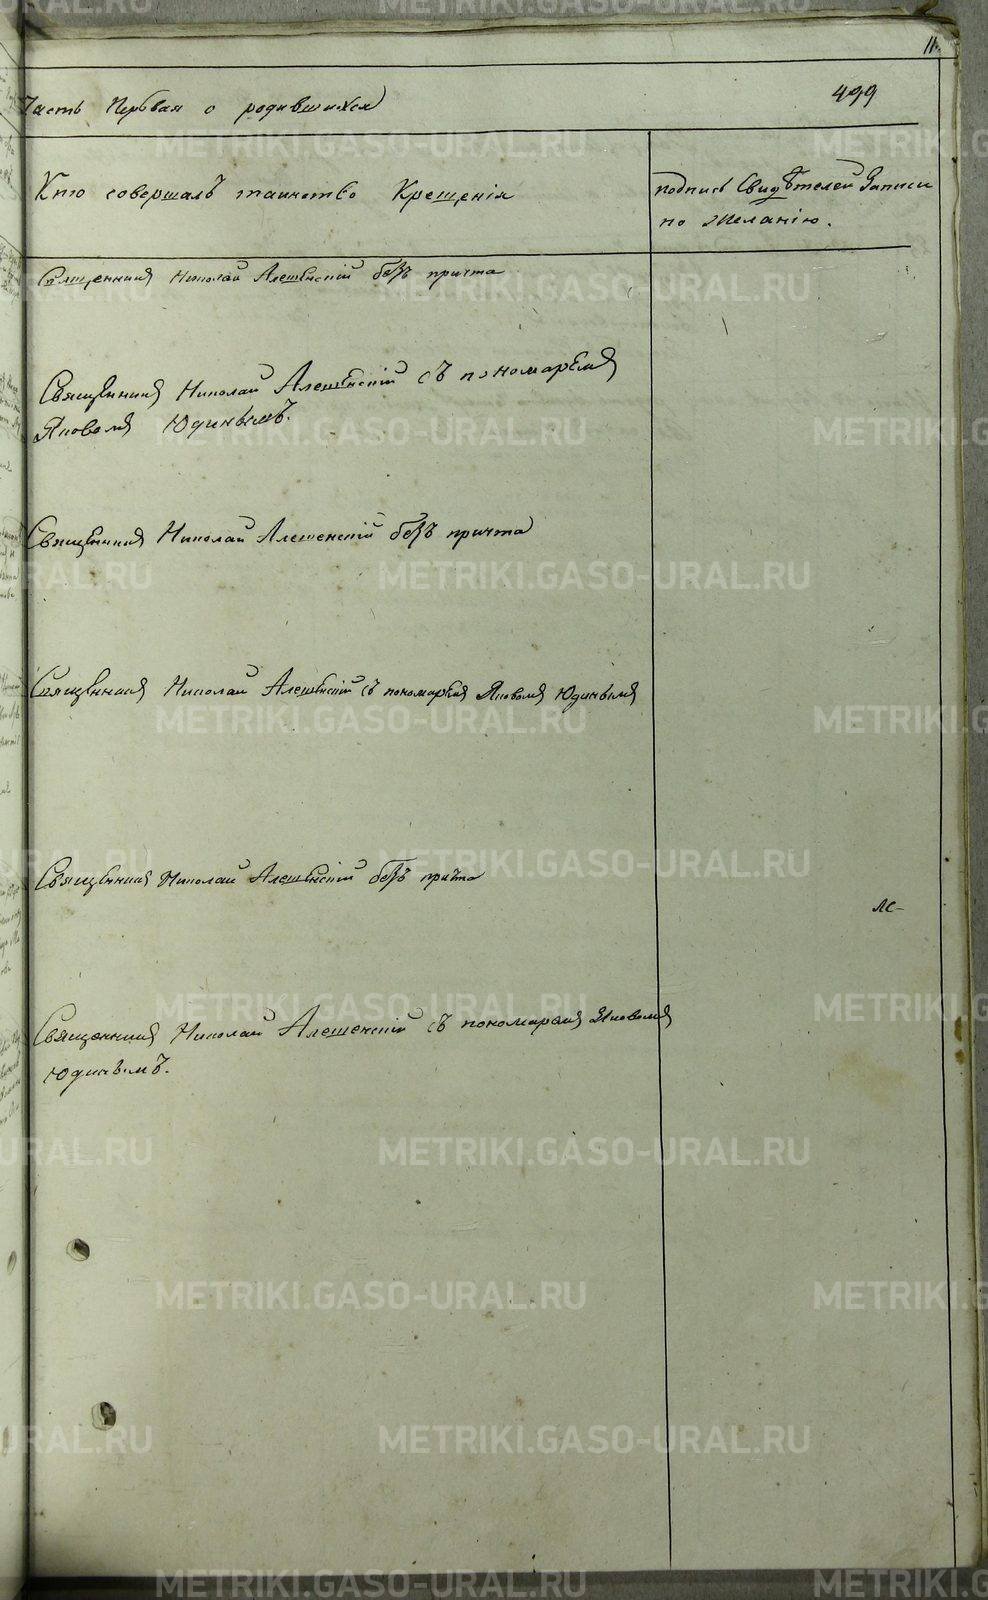 11
499
Часть Первая о родившихся
Кто совершалъ таинство Крещенія
подпись Свидѣтелей Записи
по желанію.
Священник Николай Алешенскій безъ причта
Священник Николай Алешенскій съ пономарем
Яковом Юдинымъ.
Священник Николай Алешенскій безъ причта
Священник Николай Алешенскій съ пономарем Яковом Юдиным
Священник Николай Алешенскій безъ причта
Священник Николай Алешенскій съ пономарем Яковом
Юдинымъ.
METRIKI.GASO-URAL.RU